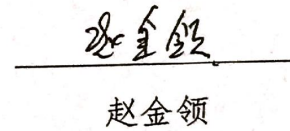 赵金领
赵金领